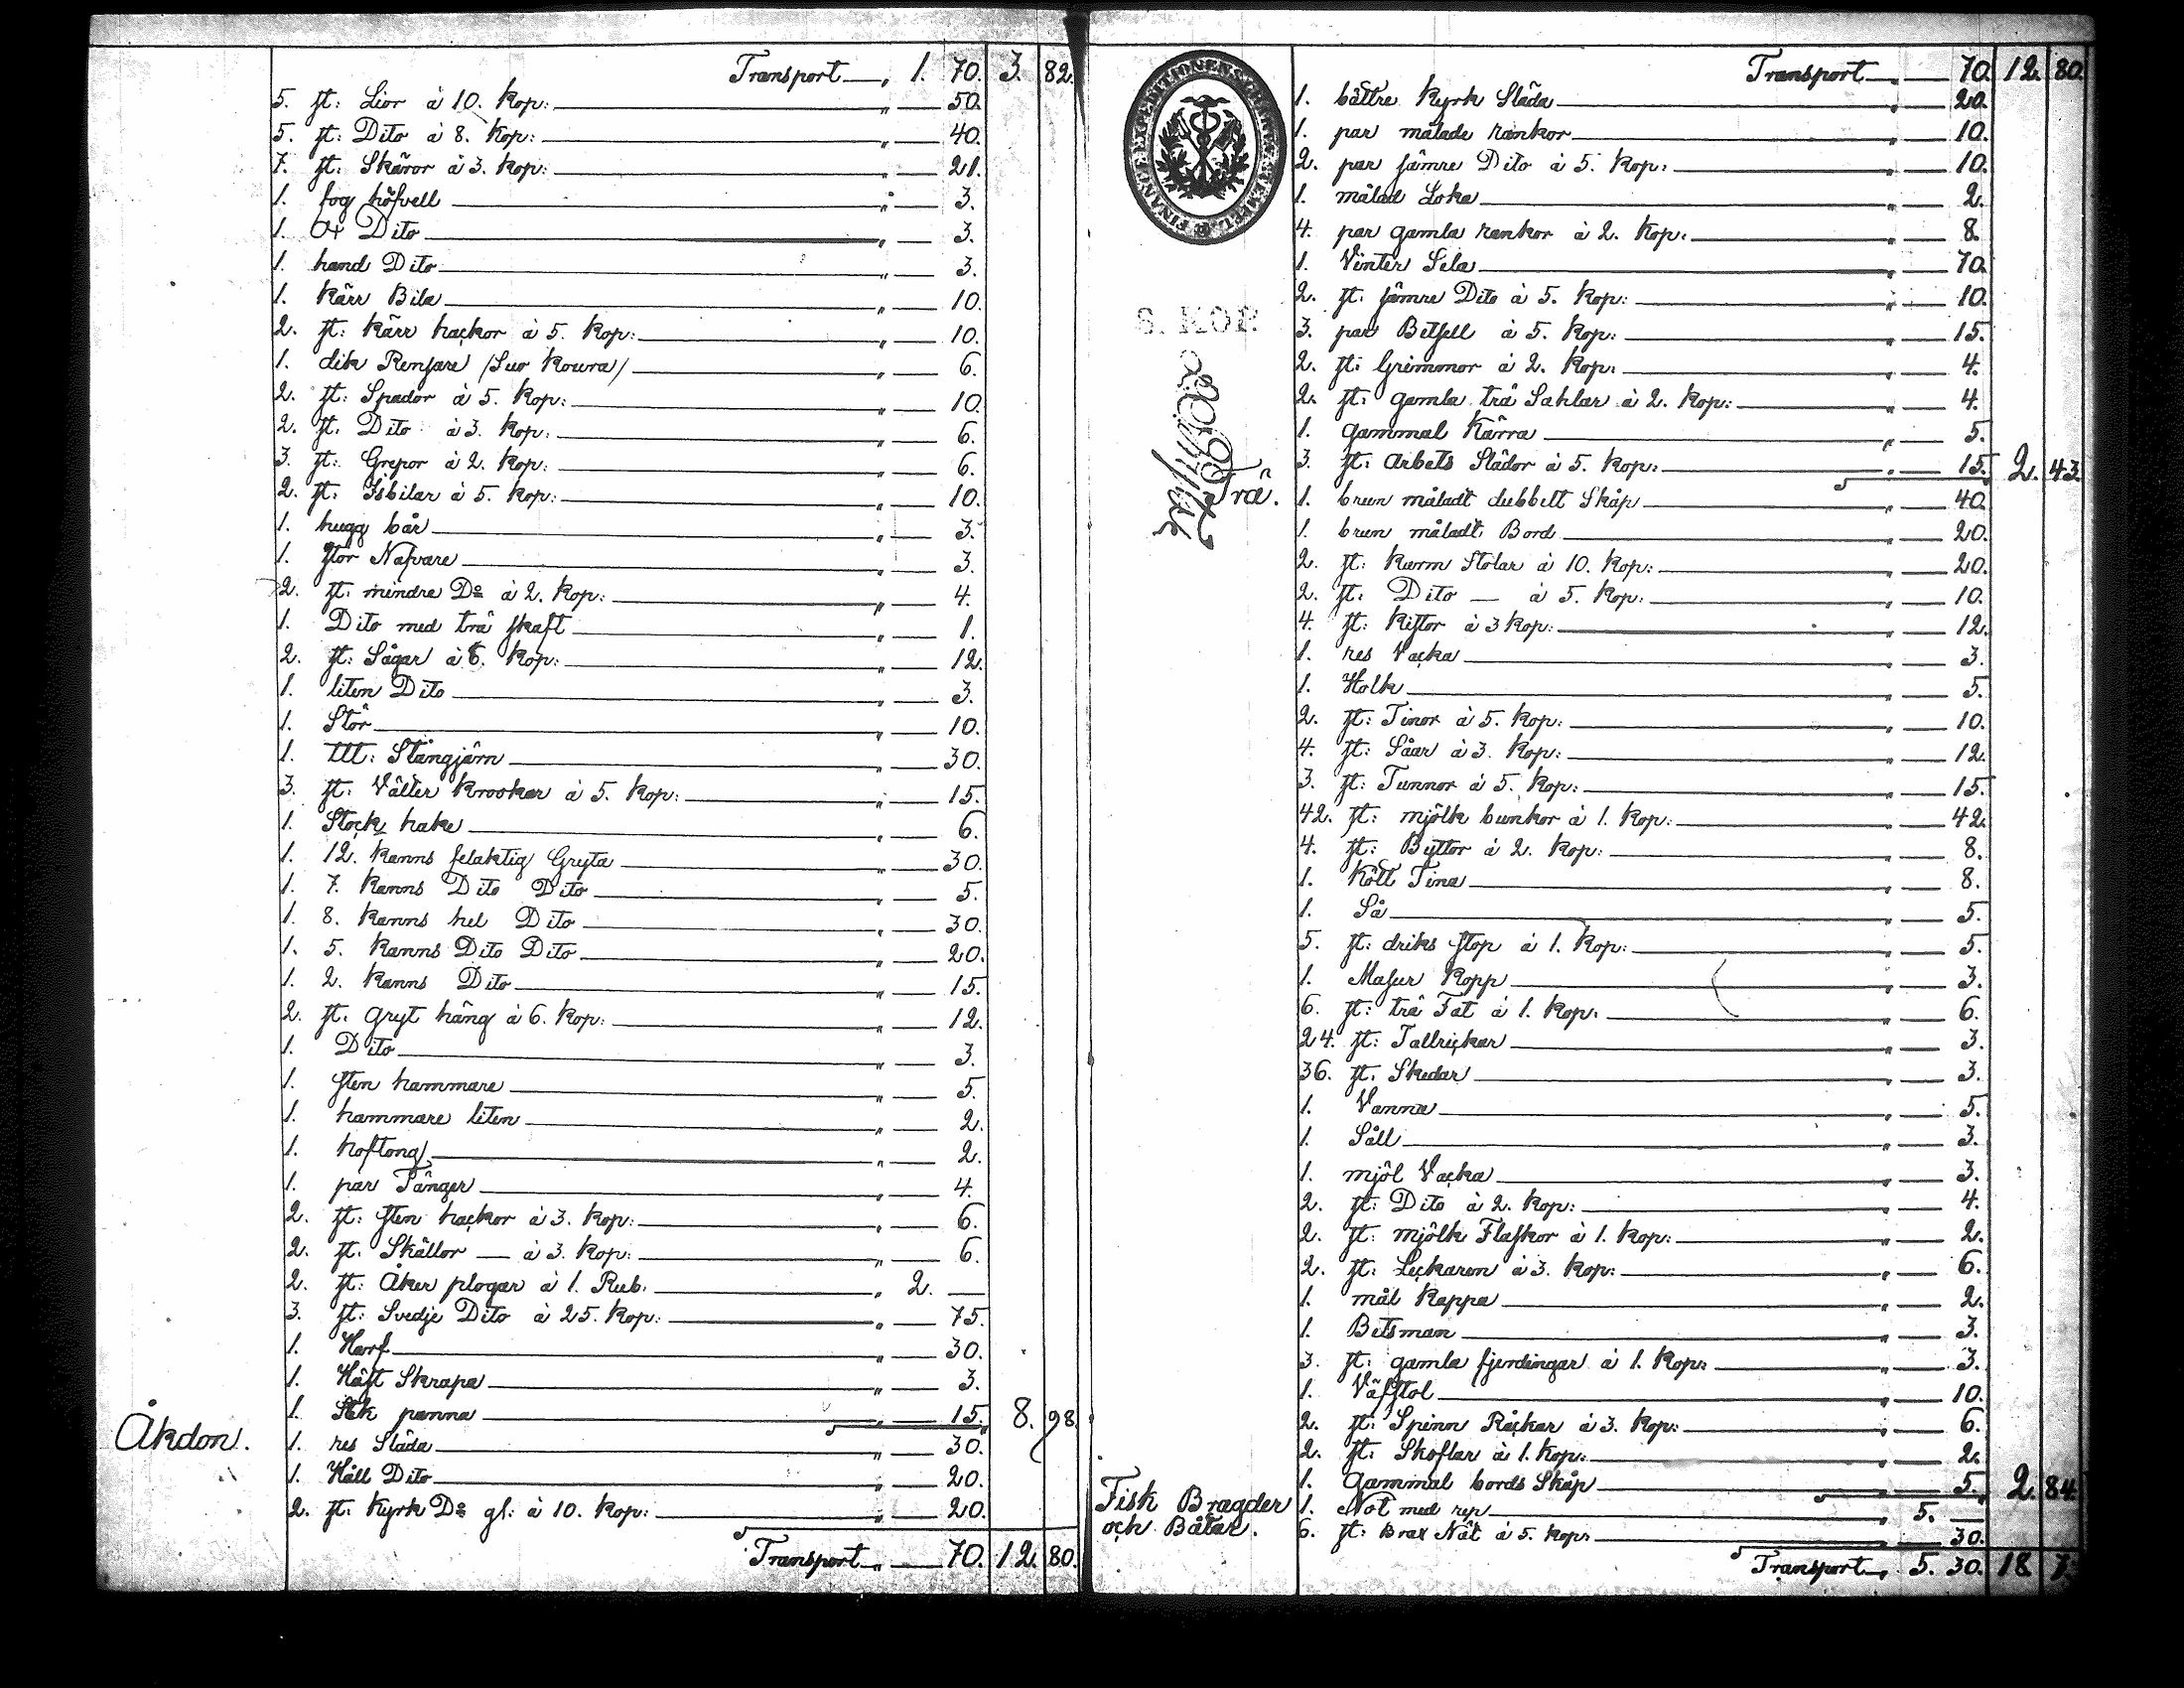 Transport „ 1. 70. 3. 82.
5. st: Lior à 10. Kop: „ 50.
5. st: Dito à 8. Kop: „ 40.
7. st: Skäror à 3. Kop: „ 21.
1. fog höfvell „ 3.
1. Ox Dito „ 3.
1. hand Dito „ 3.
1. Kärr Bila „ 10.
2. st: Kärr hackor à 5. Kop: „ 10.
1. dik Rensare /Suo Koura/ „ 6.
2. st: Spador à 5. Kop: „ 10.
2. st. Dito à 3. Kop: „ 6.
3. st: Grepor à 2. Kop: „ 6.
2. st: Isbilar à 5. Kop: „ 10.
1. hugg bår „ 3.
1. stor Nafvare „ 3.
2. st: mindre Do à 2. Kop: „ 4.
1. Dito med trä skaft „ 1.
2. st: Sågar à 6. Kop: „ 12.
1. liten Dito „ 3.
1. Stör „ 10.
1. Ltt: Stångjärn „ 30.
3. st: Välter Krookar à 5. Kop: „ 15.
1. Stock hake „ 6.
1. 12. Kanns felaktig Gryta „ 30.
1. 7. Kanns Dito Dito „ 5.
1. 8. Kanns hel Dito „ 30.
1. 5. Kanns Dito Dito „ 20.
1. 2. Kanns Dito „ 15.
2. st. Gryt häng à 6. Kop: „ 12.
1. Dito „ 3.
1. sten hammare „ 5.
1. hammare liten „ 2.
1. hoftong „ 2.
1. par Tänger „ 4.
2. st: sten hackor à 3. Kop: „ 6.
2. st. Skällor — à 3. Kop: „ 6.
2. st: Åker plogar à 1. Rub. „ 2. —
3. st: Svedje Dito à 25. Kop: „ 75.
1. Harf „ 30.
1. Häst Skrapa „ 3.
1. Stek panna „ 15. 8. 98
Åkdon.
1. res Släda „ 30.
1. Håll Dito „ 20.
2. st: Kyrk Do gl: à 10. Kop: „ 20.
Transport „ 70. 12. 80.
Transport „ 70. 12. 80.
FINANCE EXPEDITIONENS
S. KOP.
1. bättre Kyrk Släda „ 20.
1. par målade rankor „ 10.
2. par sämre Dito à 5. Kop: „ 10.
1. målad Loka „ 2.
4. par gamla rankor à 2. Kop. „ 8.
1. Vinter Sela „ 70.
2. st: sämre Dito à 5. Kop: „ 10.
3. par Betsell à 5. Kop: „ 15.
2. st: Grimmor à 2. Kop. „ 4.
2. st: gamla trä Sahlar à 2. Kop: „ 4.
1. gammal Kärra „ 5.
3. st: Arbets Slädor à 5. Kop: „ 15. 2. 43.
Trä.
1. brun måladt dubbelt Skåp „ 40.
1. brun måladt Bord „ 20.
2. st: Karm Stolar à 10. Kop: „ 20.
2. st: Dito — à 5. Kop: „ 10.
4. st: Kistor à 3 Kop: „ 12.
1. res Vacka „ 3.
1. Holk „ 5.
2. st: Tinor à 5. Kop: „ 10.
4. st: Såar à 3. Kop: „ 12.
3. st: Tunnor à 5. Kop: „ 15.
42. st: mjölk bunkor à 1. Kop: „ 42.
4. st: Byttor à 2. Kop: „ 8.
1. Kött Tina „ 8.
1. Så „ 5.
5. st: driks stop à 1. Kop: „ 5.
1. Masur Kopp „ 3.
6. st: trä Fat à 1. Kop. „ 6.
24. st: Tallrickar „ 3.
36. st. Skedar „ 3.
1. Vanna „ 5.
1. Såll „ 3.
1. mjöl Vacka „ 3.
2. st: Dito à 2. Kop: „ 4.
2. st: mjölk Flaskor à 1. Kop: „ 2.
2. st: Leckaren à 3. Kop: „ 6.
1. mål Kappa „ 2.
1. Betsman „ 3.
3. st: gamla fjerdingar à 1. Kop: „ 3.
1. Väfstol „ 10.
2. st: Spinn Råckar à 3. Kop: „ 6.
2. st: Skoflar à 1. Kop: „ 2.
1. Gammal bords Skåp „ 5. 2. 84.
Fisk Bragder
och Båtar.
1. Not med rep „ 5. —
6. st: Brax Nät à 5. Kop: „ 30.
Transport „ 5. 30. 18. 7.